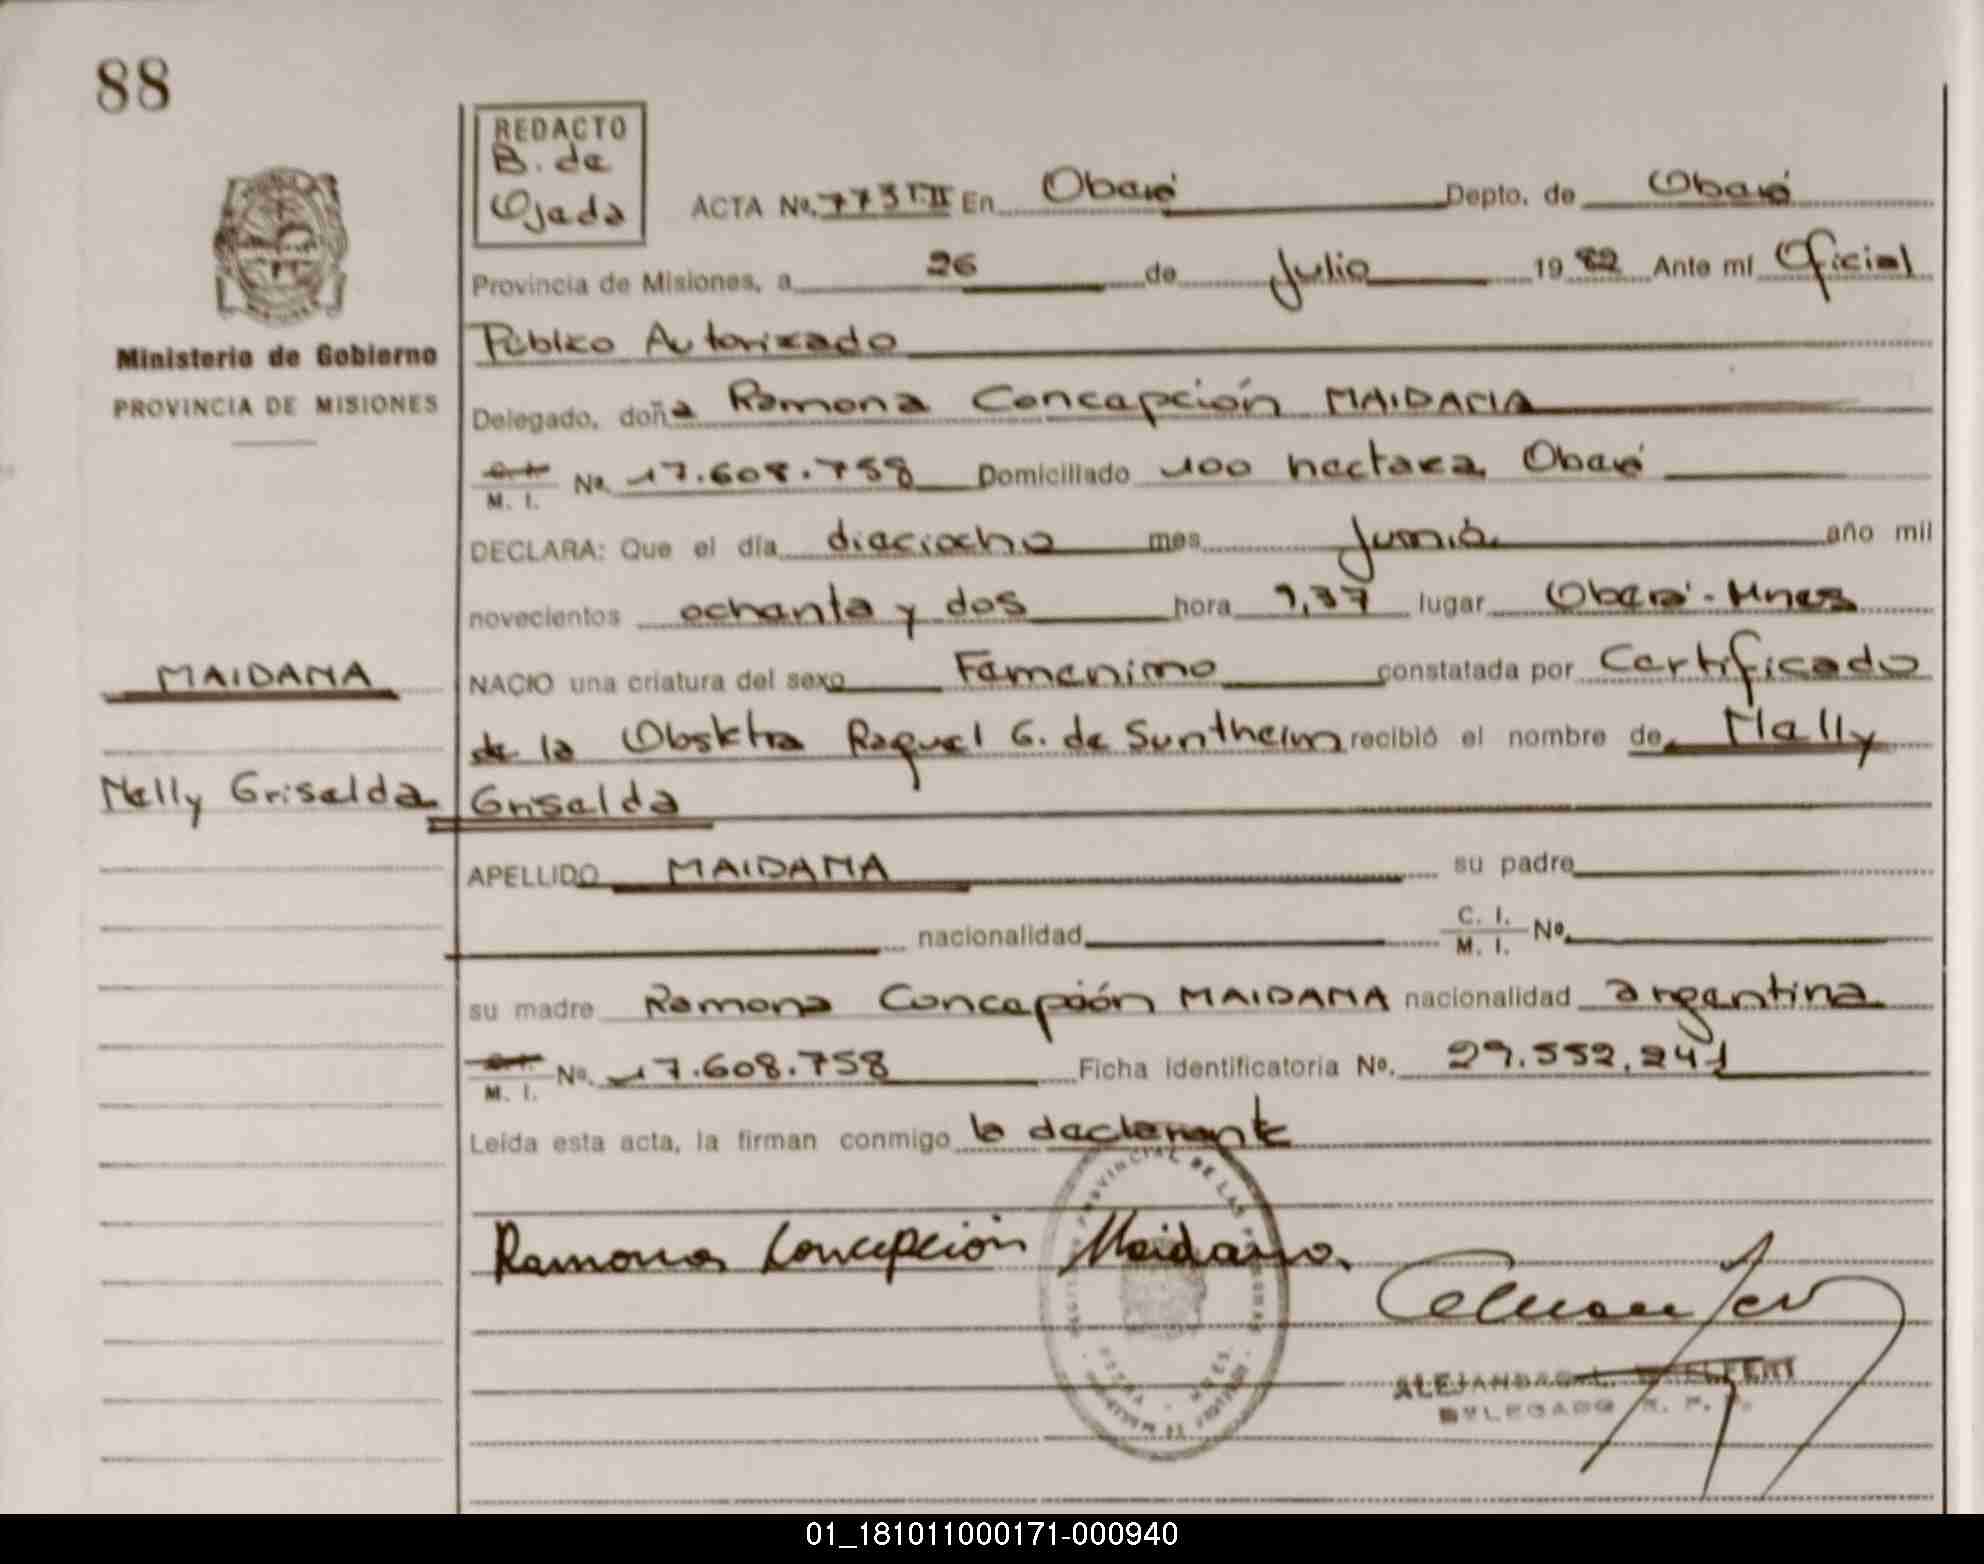 88
REDACTO
B. de
Ojeda
ACTA Nº. 773 T.II En Oberá Depto. de Oberá
Provincia de Misiones, a 26 de Julio 19 82 Ante mí Oficial
Público Autorizado
Ministerio de Gobierno
PROVINCIA DE MISIONES
Delegado, doña Ramona Concepción MAIDANA
M. I. Nº 17.608.758 Domiciliado 100 hectarea, Oberá
DECLARA: Que el día dieciocho mes Junio año mil
novecientos ochenta y dos hora 9,37 lugar Oberá-Mnes
MAIDANA
NACIO una criatura del sexo Femenino constatada por Certificado
de la Obsktra Raquel G. de Suntheim recibió el nombre de Nelly
Nelly Griselda
Griselda
APELLIDO MAIDANA su padre
nacionalidad C. I. M. I. Nº.
su madre Ramona Concepción MAIDANA nacionalidad argentina
M. I. Nº. 17.608.758 Ficha identificatoria Nº. 29.552.241
Leída esta acta, la firman conmigo la declarante
PROVINCIAL DE LAS PERSONAS
Ramona Concepción Maidana.
DELEGADO R. P.
01_181011000171-000940